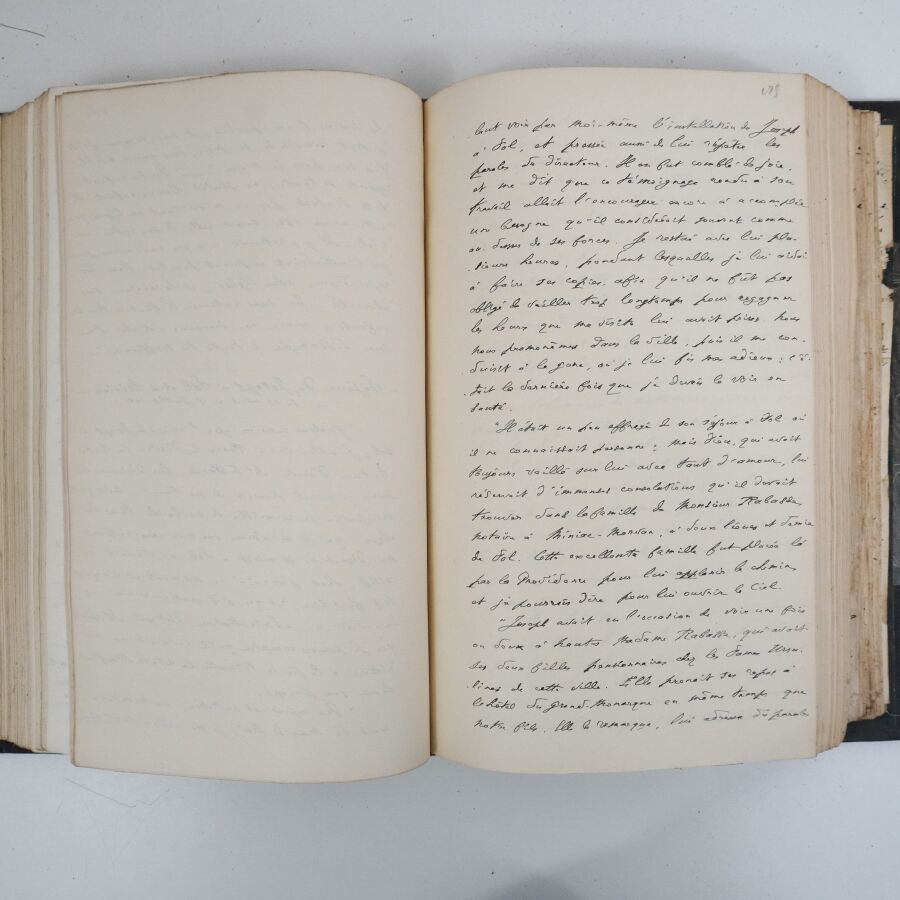 lait voir par moi-même l'installation de Joseph
à Dol, et pressée aussi de lui répéter les
paroles du directeur. Il en fut comblé de joie,
et me dit que ce témoignage rendu à son
travail allait l'encourager encore à accomplir
une besogne qu'il considérait souvent comme
au-dessus de ses forces. Je restai avec lui plu-
sieurs heures, pendant lesquelles je lui aidai
à faire ses copies, afin qu'il ne fût pas
obligé de veiller trop longtemps pour regagner
les heures que ma visite lui avait prises. Nous
nous promenâmes dans la ville, puis il me con-
duisit à la gare, où je lui fis mes adieux ; c'é-
tait la dernière fois que je devais le voir en
santé.
"Il était un peu effrayé de son séjour à Dol où
il ne connaissait personne ; mais Dieu, qui avait
toujours veillé sur lui avec tant d'amour, lui
réservait d'immenses consolations qu'il devait
trouver dans la famille de Monsieur Rabasse
notaire à Miniac-Morvan, à deux lieues et demie
de Dol. Cette excellente famille fut placée là
par la Providence pour lui applanir le chemin,
et je pourrais dire pour lui ouvrir le Ciel.
"Joseph avait eu l'occasion de voir une fois
ou deux à Madame Rabasse, qui avait
ses deux filles pensionnaires chez les Dames Ursu-
lines de cette ville. Elle prenait ses repas à
l'hôtel du Grand-Monarque en même temps que
notre fils. Elle le remarqua, lui adressa des paroles